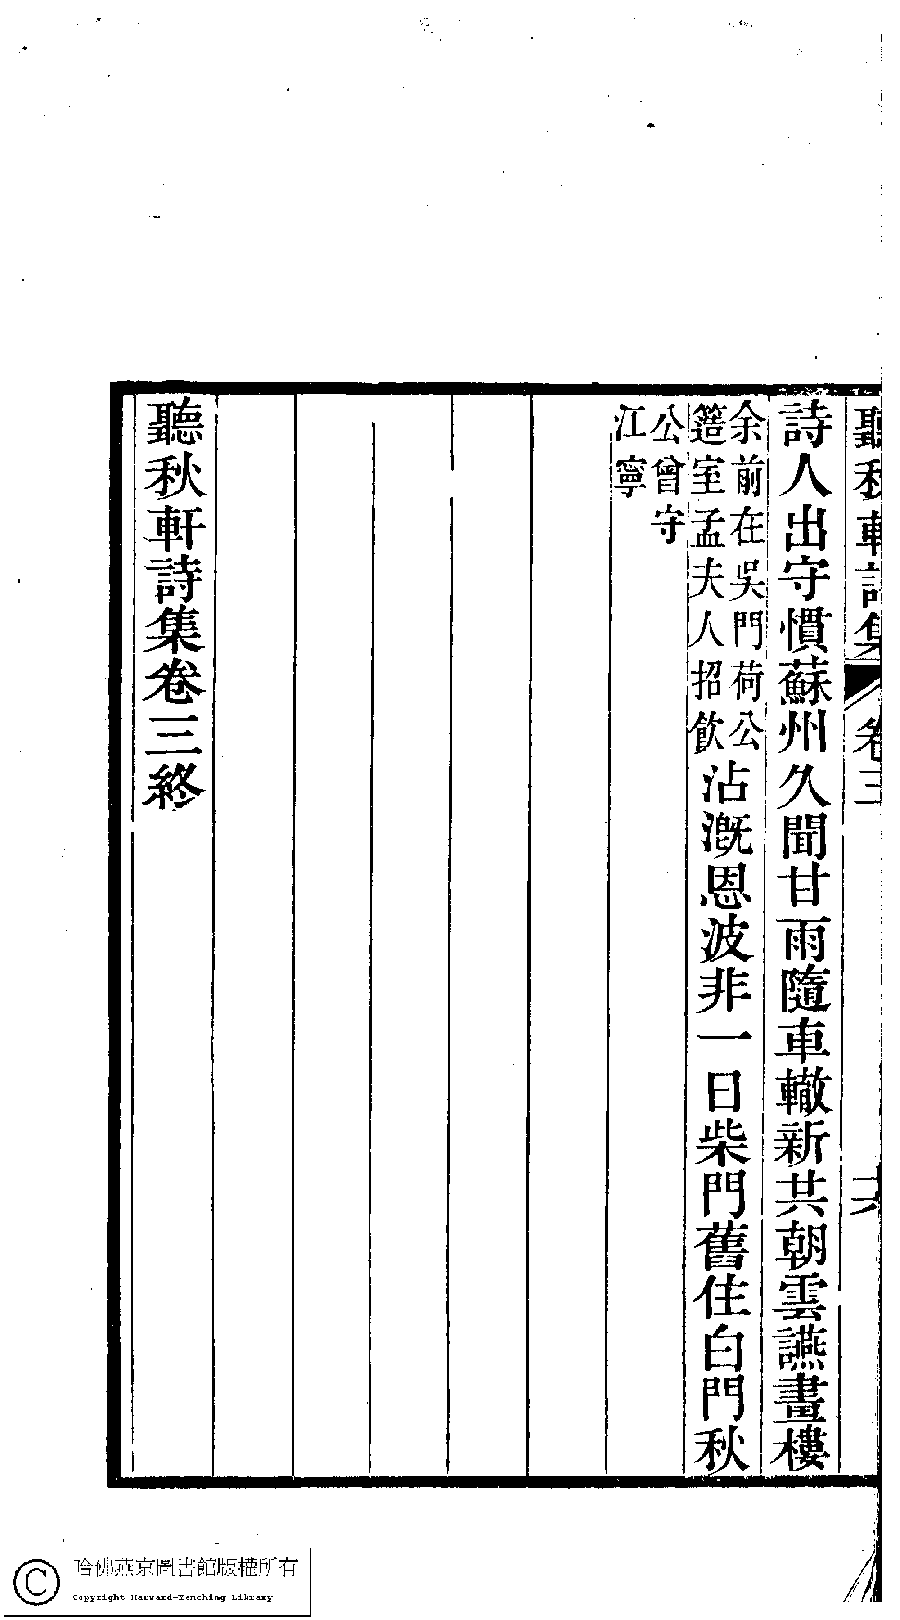 聽秋軒詩集 卷三 六
詩人出守慣蘇州久聞甘雨隨車轍新共朝雲讌畫樓
余前在吳門荷公
簉室孟夫人招飲
沾漑恩波非一日柴門舊住白門秋
公曾守
江寧
聽秋軒詩集卷三終
哈佛燕京圖書館版權所有
Copyright Harvard-Yenching Library